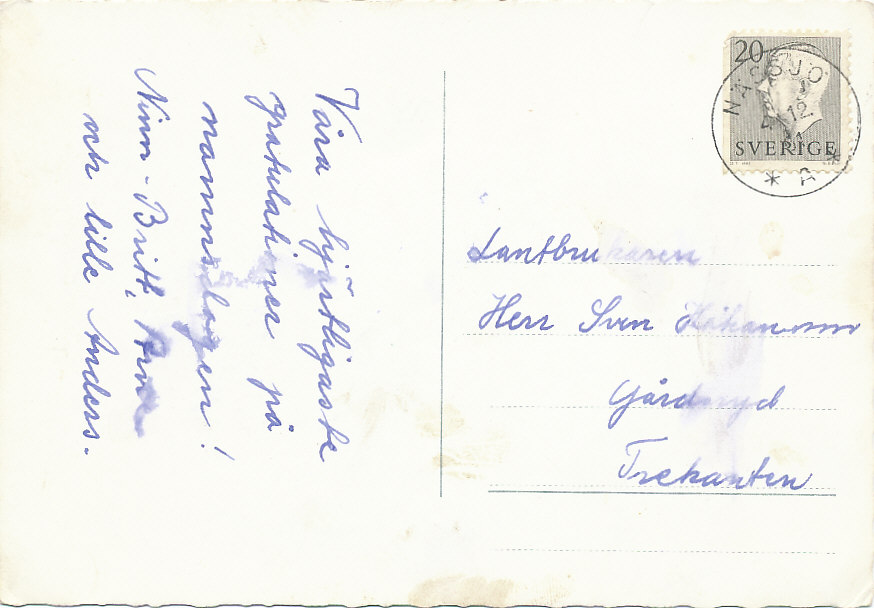 Våra hjärtligaste
gratulationer på
namnsdagen!
Ninn-Britt, Arne
och lille Anders.
20
SVERIGE
NÄSSJÖ
12
* A *
Lantbrukaren
Herr Sven Håkansson
Gårdsryd
Trekanten